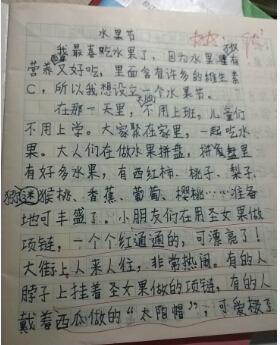 水果节
我最喜吃水果了，因为水果有
营养又好吃，里面含有许多的维生素
C，所以我想设立一个水果节。
在那一天里，大人不用上班，儿童们
不用上学。大家聚在家里，一起吃水
果。大人们在做水果拼盘，拼盘里
有好多水果，有西红柿、桃子、梨子、
猕猴桃、香蕉、葡萄、樱桃…准备
地可丰盛了。小朋友们在用圣女果做
项链，一个个红通通的，可漂亮了！
大街上人来人往，非常热闹，有的人
脖子上挂着圣女果做的项链，有的人
戴着西瓜做的“太阳帽”，可爱极了